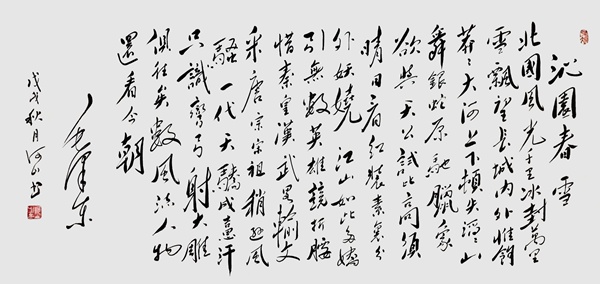 沁園春雪
北國風光千里冰封萬里
雪飄望長城內外惟餘
莽々大河上下頓失滔々山
舞銀蛇原馳臘象
欲與天公試比高須
晴日看紅裝素裹分
外妖嬈江山如此多嬌
引無數英雄競折腰
惜秦皇漢武略輸文
采唐宗宋祖稍遜風
騷一代天驕成吉思汗
只識彎弓射大雕
俱往矣數風流人物
還看今朝
毛澤東
戊戌秋月河山书